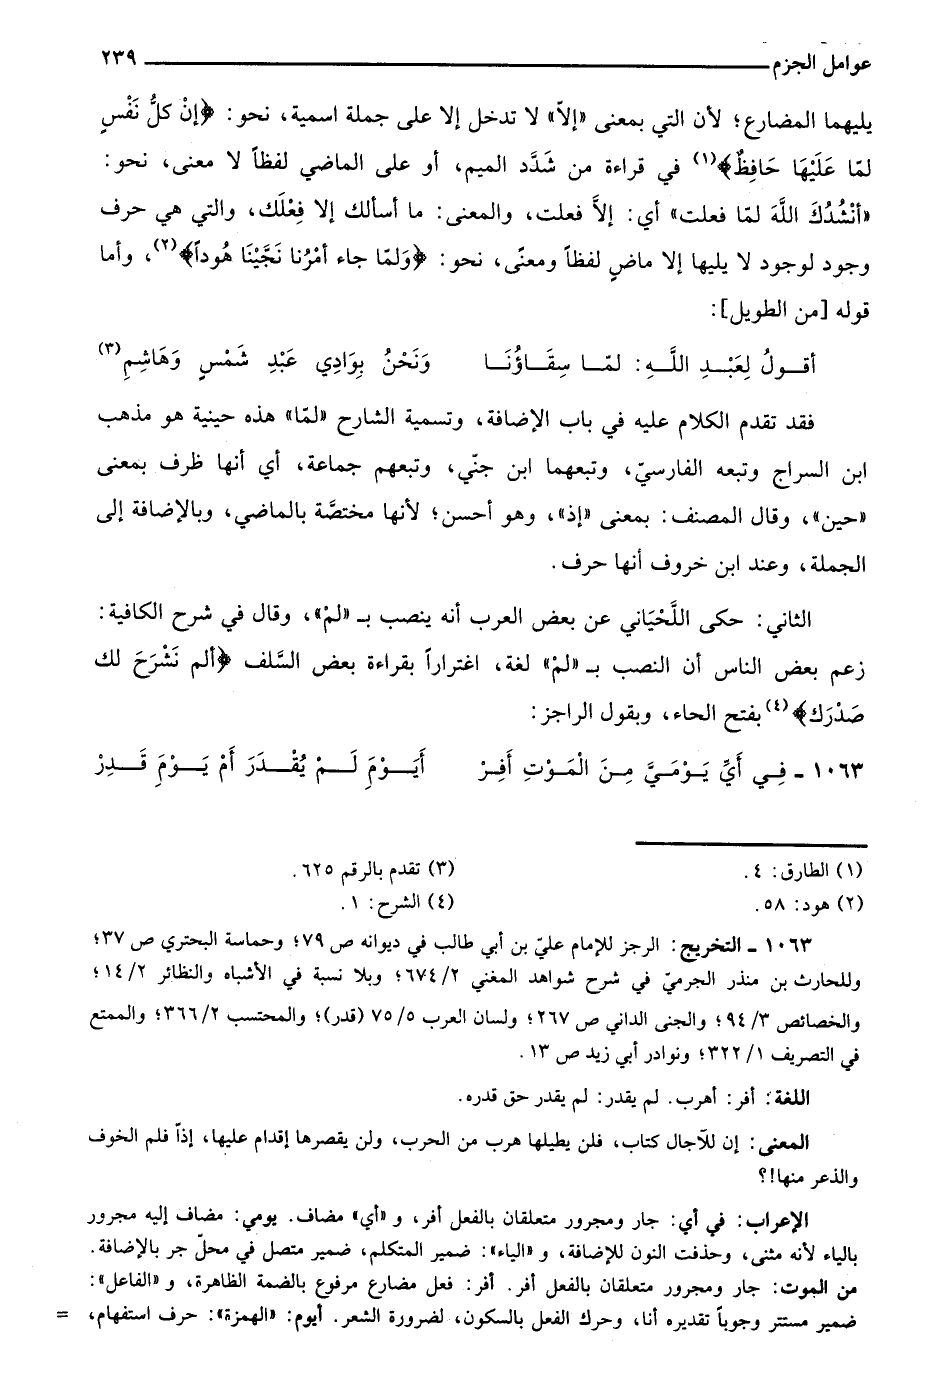 عوامل الجزم ٢٣٩
يليهما المضارع؛ لأن التي بمعنى «إلاّ» لا تدخل إلا على جملة اسمية، نحو: ﴿إنْ كلُّ نَفْسٍ
لمّا عَلَيْهَا حَافِظٌ﴾(١) في قراءة من شَدَّد الميم، أو على الماضي لفظاً لا معنى، نحو:
«أنْشُدُكَ اللَّهَ لمّا فعلت» أي: إلاَّ فعلت، والمعنى: ما أسألك إلا فِعْلَك، والتي هي حرف
وجود لوجود لا يليها إلا ماضٍ لفظاً ومعنًى، نحو: ﴿وَلمّا جاء أمْرُنا نَجَّيْنَا هُوداً﴾(٢)، وأما
قوله [من الطويل]:
أقولُ لِعَبْدِ اللَّهِ: لمّا سِقَاؤُنَا وَنَحْنُ بِوَادِي عَبْدِ شَمْسٍ وَهَاشِمِ(٣)
فقد تقدم الكلام عليه في باب الإضافة، وتسمية الشارح «لمّا» هذه حينية هو مذهب
ابن السراج وتبعه الفارسيّ، وتبعهما ابن جنّي، وتبعهم جماعة، أي أنها ظرف بمعنى
«حين»، وقال المصنف: بمعنى «إذ»، وهو أحسن؛ لأنها مختصَّة بالماضي، وبالإضافة إلى
الجملة، وعند ابن خروف أنها حرف.
الثاني: حكى اللَّحْيَاني عن بعض العرب أنه ينصب بـ «لمْ»، وقال في شرح الكافية:
زعم بعض الناس أن النصب بـ «لمْ» لغة، اغتراراً بقراءة بعض السَّلف ﴿ألم نَشْرَحَ لك
صَدْرَك﴾(٤) بفتح الحاء، وبقول الراجز:
١٠٦٣ - فِي أَيِّ يَوْمَيَّ مِنَ الْمَوْتِ أَفِرْ أَيَوْمَ لَمْ يُقْدَرَ أَمْ يَوْمَ قَدِرْ
(١) الطارق: ٤. (٣) تقدم بالرقم ٦٢٥.
(٢) هود: ٥٨. (٤) الشرح: ١.
١٠٦٣ - التخريج: الرجز للإمام عليّ بن أبي طالب في ديوانه ص ٧٩؛ وحماسة البحتري ص ٣٧؛
وللحارث بن منذر الجرميّ في شرح شواهد المغني ٢/ ٦٧٤؛ وبلا نسبة في الأشباه والنظائر ٢/ ١٤؛
والخصائص ٣/ ٩٤؛ والجنى الداني ص ٢٦٧؛ ولسان العرب ٥/ ٧٥ (قدر)؛ والمحتسب ٢/ ٣٦٦؛ والممتع
في التصريف ١/ ٣٢٢؛ ونوادر أبي زيد ص ١٣.
اللغة: أفر: أهرب. لم يقدر: لم يقدر حق قدره.
المعنى: إن للآجال كتاب، فلن يطيلها هرب من الحرب، ولن يقصرها إقدام عليها، إذاً فلم الخوف
والذعر منها!؟
الإعراب: في أي: جار ومجرور متعلقان بالفعل أفر، و «أي» مضاف. يومي: مضاف إليه مجرور
بالياء لأنه مثنى، وحذفت النون للإضافة، و «الياء»: ضمير المتكلم، ضمير متصل في محلّ جر بالإضافة.
من الموت: جار ومجرور متعلقان بالفعل أفر. أفر: فعل مضارع مرفوع بالضمة الظاهرة، و «الفاعل»:
ضمير مستتر وجوباً تقديره أنا، وحرك الفعل بالسكون، لضرورة الشعر. أيوم: «الهمزة»: حرف استفهام، =